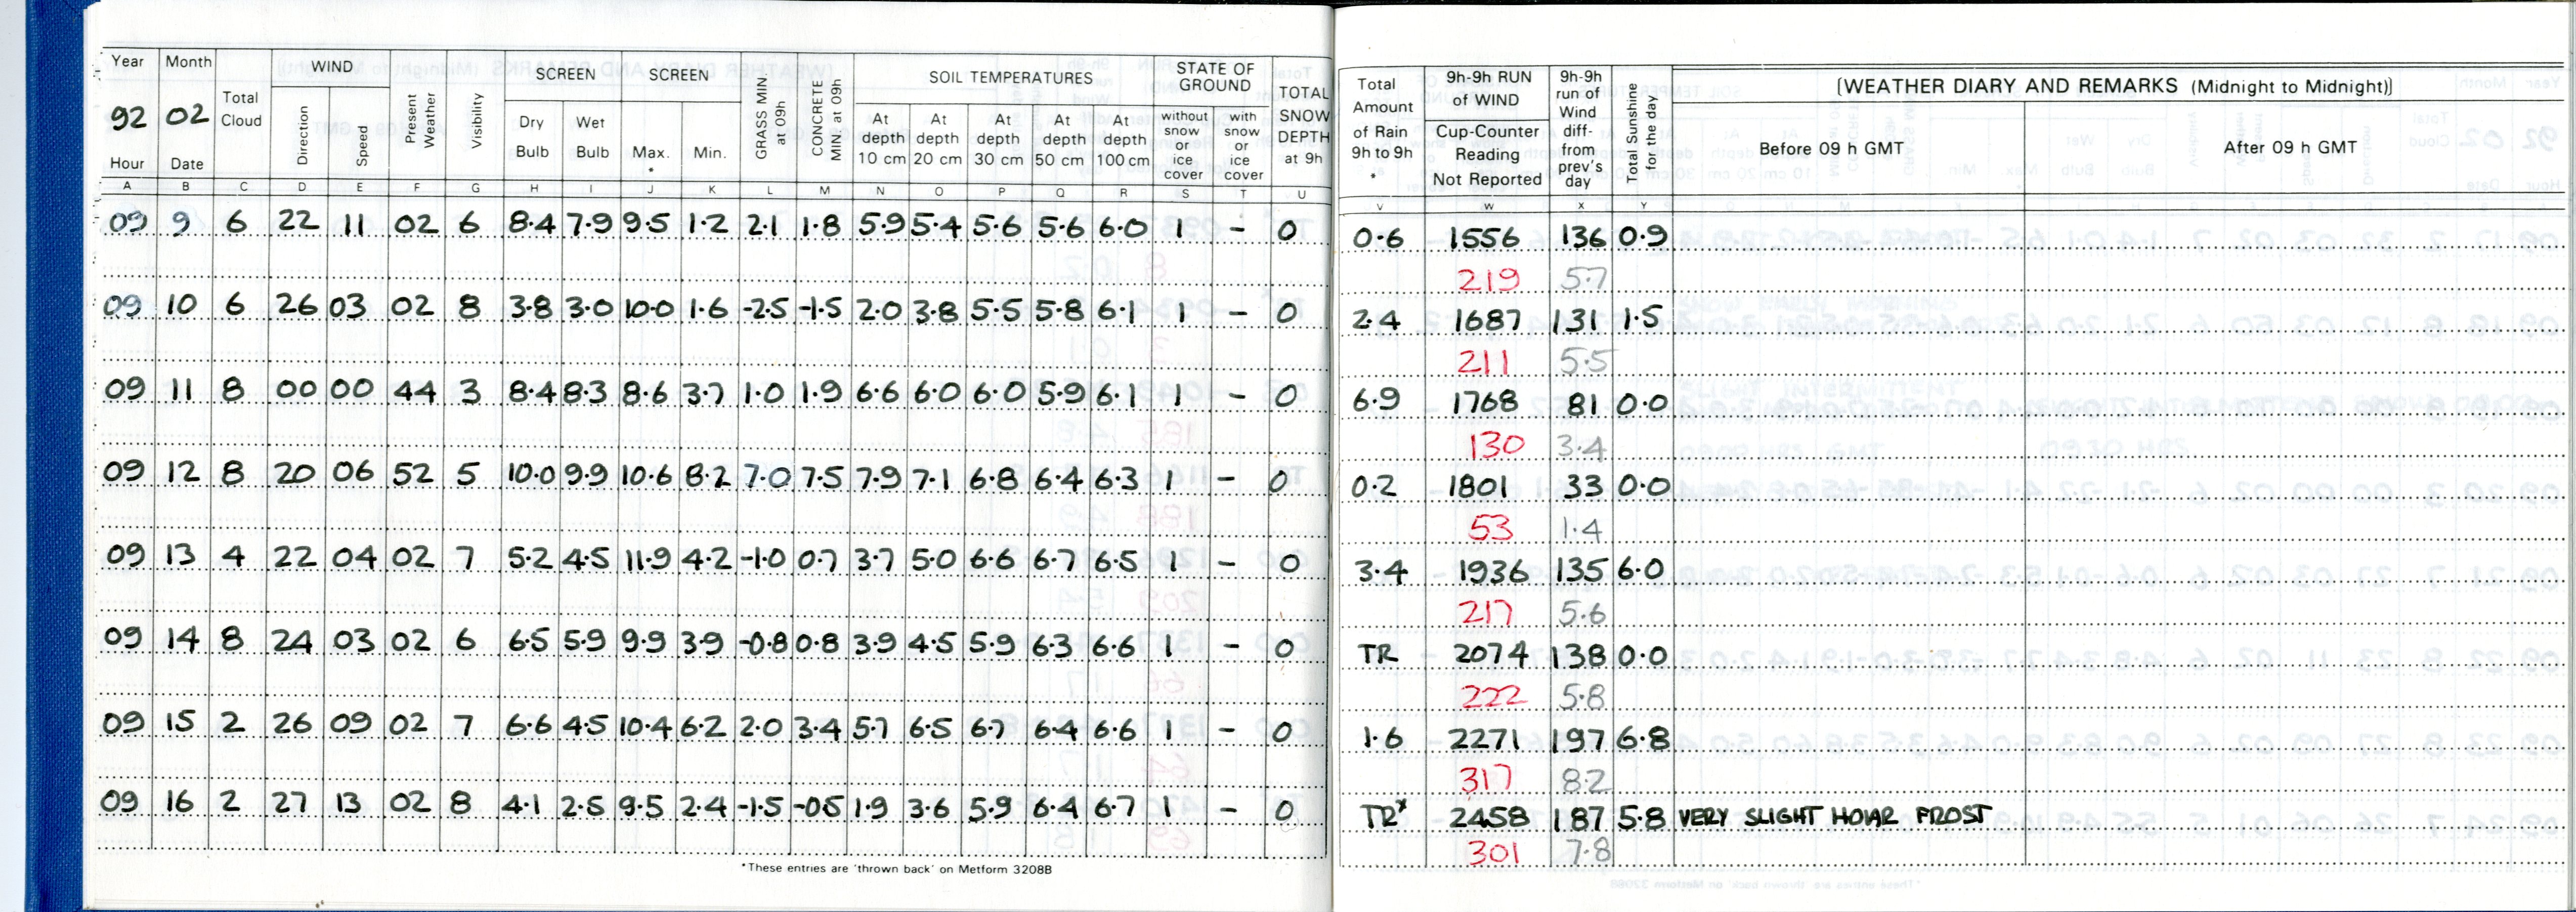 Year Month WIND SCREEN SCREEN SOIL TEMPERATURES STATE OF GROUND
92 02 Total Cloud Direction Speed Present Weather Visibility Dry Bulb Wet Bulb Max. * Min. GRASS MIN at 09h CONCRETE MIN at 09h At depth 10 cm At depth 20 cm At depth 30 cm At depth 50 cm At depth 100 cm without snow or ice cover with snow or ice cover TOTAL SNOW DEPTH at 9h
Hour Date
A B C D E F G H I J K L M N O P Q R S T U
09 9 6 22 11 02 6 8.4 7.9 9.5 1.2 2.1 1.8 5.9 5.4 5.6 5.6 6.0 1 - 0
09 10 6 26 03 02 8 3.8 3.0 10.0 1.6 -2.5 -1.5 2.0 3.8 5.5 5.8 6.1 1 - 0
09 11 8 00 00 44 3 8.4 8.3 8.6 3.7 1.0 1.9 6.6 6.0 6.0 5.9 6.1 1 - 0
09 12 8 20 06 52 5 10.0 9.9 10.6 8.2 7.0 7.5 7.9 7.1 6.8 6.4 6.3 1 - 0
09 13 4 22 04 02 7 5.2 4.5 11.9 4.2 -1.0 0.7 3.7 5.0 6.6 6.7 6.5 1 - 0
09 14 8 24 03 02 6 6.5 5.9 9.9 3.9 -0.8 0.8 3.9 4.5 5.9 6.3 6.6 1 - 0
09 15 2 26 09 02 7 6.6 4.5 10.4 6.2 2.0 3.4 5.7 6.5 6.7 6.4 6.6 1 - 0
09 16 2 27 13 02 8 4.1 2.5 9.5 2.4 -1.5 -05 1.9 3.6 5.9 6.4 6.7 1 - 0
*These entries are 'thrown back' on Metform 3208B
Total Amount of Rain 9h to 9h * 9h-9h RUN of WIND Cup-Counter Reading Not Reported 9h-9h run of Wind diff- from prev's day Total Sunshine for the day [WEATHER DIARY AND REMARKS (Midnight to Midnight)]
Before 09 h GMT After 09 h GMT
V W X Y
0.6 1556 136 0.9
219 5.7
2.4 1687 131 1.5
211 5.5
6.9 1768 81 0.0
130 3.4
0.2 1801 33 0.0
53 1.4
3.4 1936 135 6.0
217 5.6
TR 2074 138 0.0
222 5.8
1.6 2271 197 6.8
317 8.2
TR* 2458 187 5.8 VERY SLIGHT HOAR FROST
301 7.8